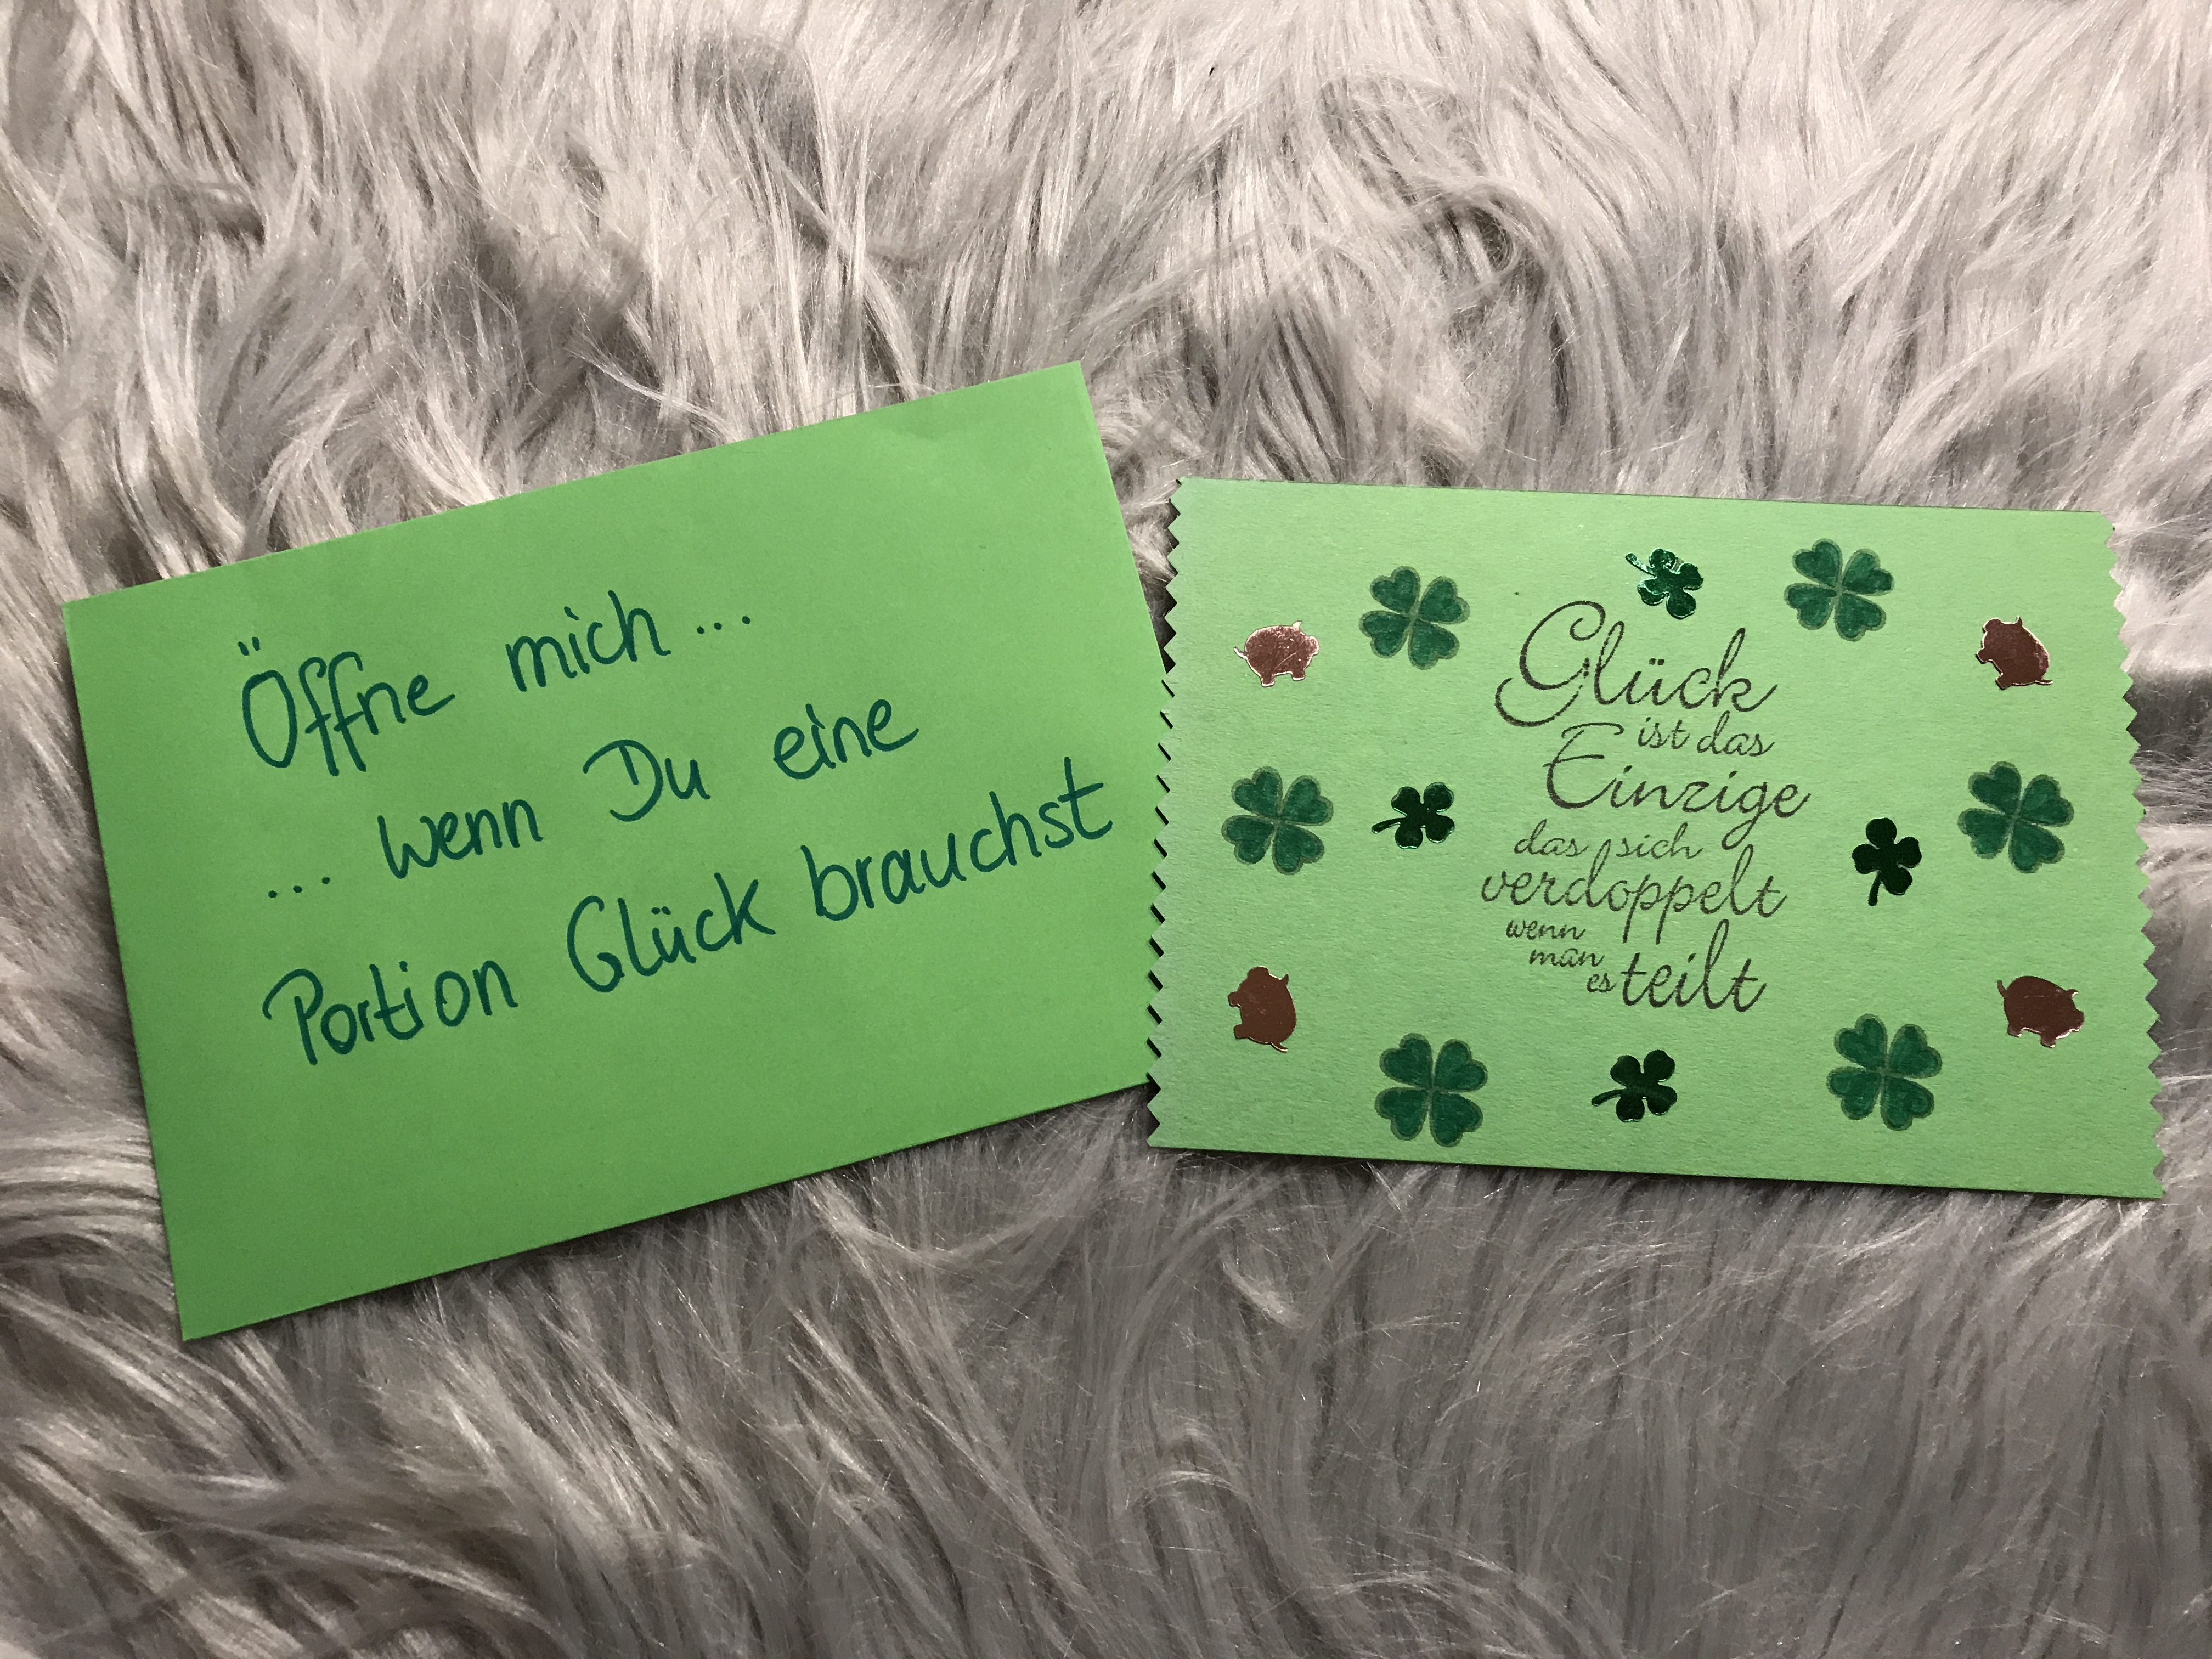 Öffne mich...
... wenn Du eine
Portion Glück brauchst
Glück
ist das
Einzige
das sich
verdoppelt
wenn
man
es teilt